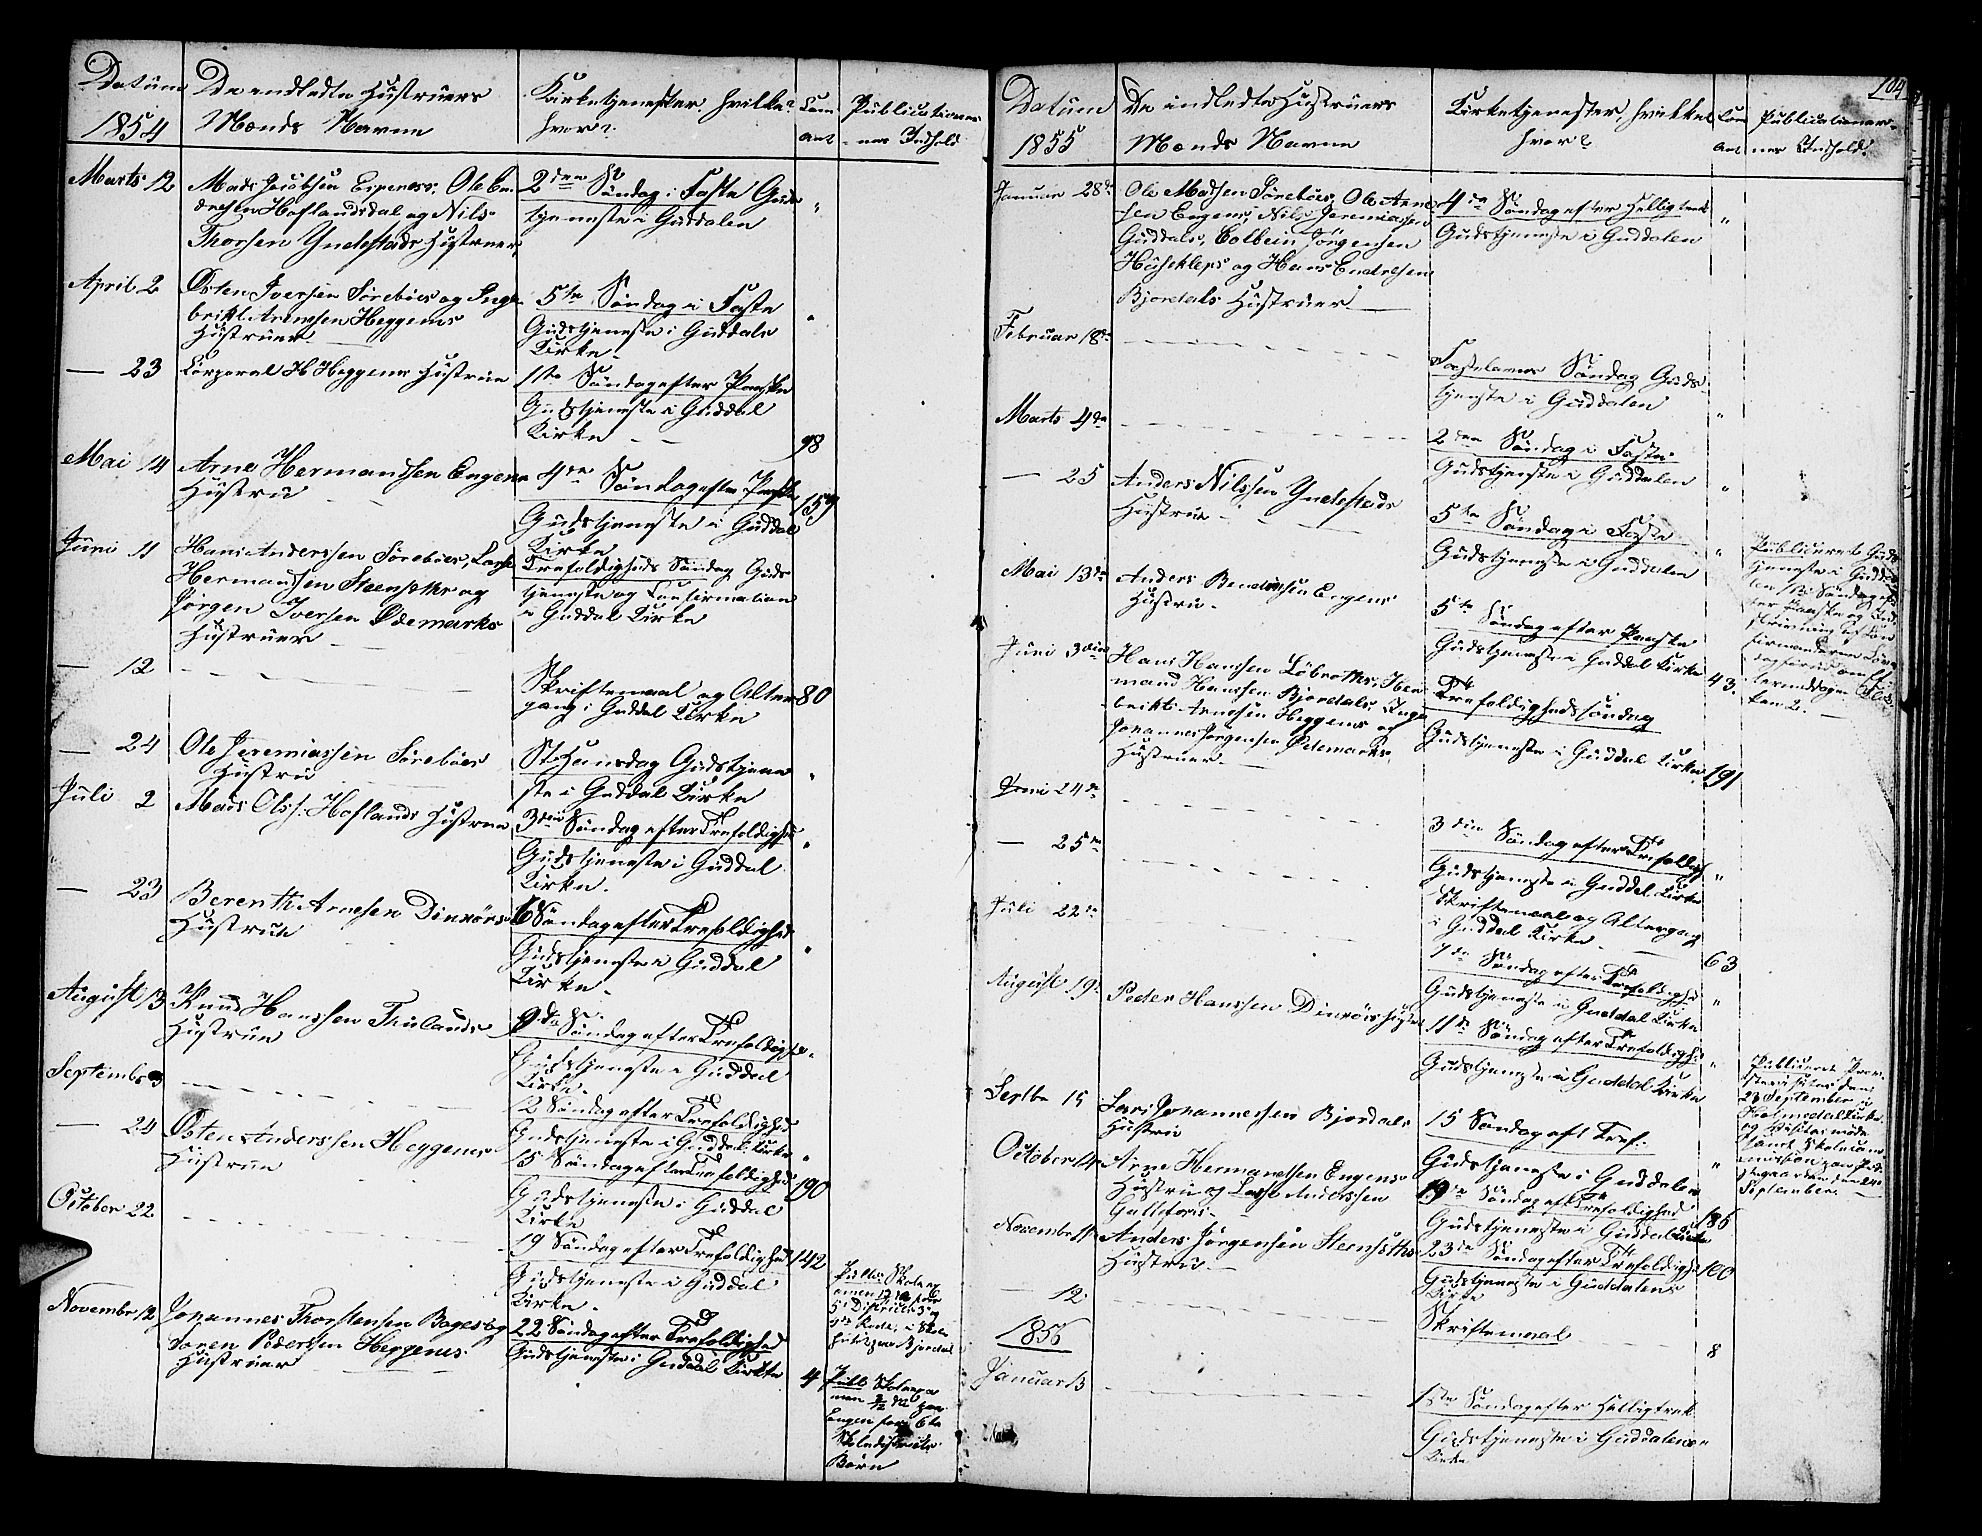 Datum
1854
De indledte Hustruers
Mænds Navne
Kirketjenester, hvilke?
hvor?
Com
ant
Publicationer
nes Indhold
Marts 12
Mads Jacobsen Espenes, Ole En
dresen Hoflandsdal og Nils
Thorsen Yndestads Hustruer,
2den Søndag i Faste Guds
tjeneste i Guddalen
"
April 2
Østen Iversen Sørebøes og Inge
brikt Arnesen Heggenes
Hustruer
5te Søndag i Faste
Gudstjeneste i Guddals
Kirke
"
— 23
Corporal H Heggenes Hustrue
1ste Søndag efter Paaske
Gudstjeneste i Guddal
Kirke
98
Mai 14
Arne Hermandsen Engens
Hustru
4de Søndag efter Paaske
Gudstjeneste i Guddal
Kirke
157
Juni 11
Hans Anderssen Sørebøes, Lasse
Hermansen Steensæter og
Jørgen Iversen Ødemarks
Hustruer
Trefoldigheds Søndag Guds
tjeneste og Confirmation
i Guddal Kirke
— 12
Skriftemaal og Alter
gang i Guddal Kirke
80
— 24
Ole Jeremiassen Sørebøes
Hustru
St Hansdag Gudstjene
ste i Guddal Kirke
"
Juli 2
Mads Olss: Hoflands Hustrue
3die Søndag efter Trefoldighed
Gudstjeneste i Guddal
Kirke.
"
— 23
Berenth Arnesen Dinxørs
Hustrue
6 Søndag efter Trefoldighed
Gudstjeneste i Guddal
Kirke
"
August 13
Knud Hanssen Thulands
Hustrue
9de Søndag efter Trefoldighed
Gudstjeneste i Guddal
Kirke.
Septembr 3
12 Søndag efter Trefoldighed
Gudstjeneste i Guddal Kirke
"
— 24
Østen Anderssen Heggenes
Hustrue
15 Søndag efter Trefoldighed
Gudstjeneste i Guddal
Kirke
190
October 22
19 Søndag efter Trefoldighed
Gudstjeneste i Guddal
Kirke.
142
Novembr 12
Johannes Thorstensen Bogsvog
Søren Pedersen Heggenes
Hustruer
22 Søndag efter Trefoldighed
Gudstjeneste i Guddal Kirke
4
Publ: Skoleex
Publ Skoleexa
Engen for 6te
Skoledistricts
Børn
104
Datum
1855
De indledte Hustruers
Mænds Navne
Kirketjenester, hvilke?
hvor?
Com
ant
Publicationer-
nes Indhold
Januar 28de
Ole Madsen Sørebøes, Ole Arne
sen Engens, Nils Jeremiassen
Guddals, Colbein Jørgensen
Husekleps og Hans Endresen
Bjordals Hustruer
4de Søndag efter Helligtrek
Gudstjeneste i Guddalen
"
Februar 18de
Fastelavns Søndag Guds
tjeneste i Guddalen
"
Marts 4de
2den Søndag i Faste
Gudstjeneste i Guddalen
"
— 25
Anders Nilssen Yndestads
Hustrue
5te Søndag i Faste
Gudstjeneste i Guddalen
"
Mai 13de
Anders Bendixsen Engens
Hustru
5te Søndag efter Paaske
Gudstjeneste i Guddal Kirke
43.
Juni 3die
Hans Hanssen Løbøthe, Her
mand Hanssen Bjordals, Inge
brikt Arnesen Heggenes og
Johannes Jørgensen Ødemarks
Hustruer
Trefoldighedssøndag
Gudstjeneste i Guddal Kirke
191
Juni 24de
3die Søndag efter Trefoldigh
Gudstjeneste i Guddal Kirke
"
— 25de
Skriftemaal og Altergang
i Guddal Kirke
63
Juli 22de
7de Søndag efter Trefoldigh
Gudstjeneste i Guddal Kirke
"
August 19de
Peder Hanssen Dinxørs Hustrue
11te Søndag efter Trefoldighed
Gudstjeneste i Guddal Kirke
"
Septbr 15
Lars Johannessen Bjordals
Hustru
15 Søndag eft Tref:
Gudstjeneste i Guddalen
"
Publiceret Prov
stevisitas den
23 September i
Holmedal Kirke
og Visitasmøde
samt Skolecom
mission paa Præ
stegaarden den 24
September.
October 14
Arne Hermandsen Engens
Hustru og Lasse Anderssen
19de Søndag eft Trefoldighed
Gudstjeneste i Guddal Kirke
186
November 11
Anders Jørgensen Steensæthe
Hustru
23de Søndag efter Trefoldigh
Gudstjeneste i Guddalens
Kirke
100
— 12
Skriftemaal
8
1856
Januar 13
1ste Søndag efter Helligtrek
Gudstjeneste i Guddalens
Kirke